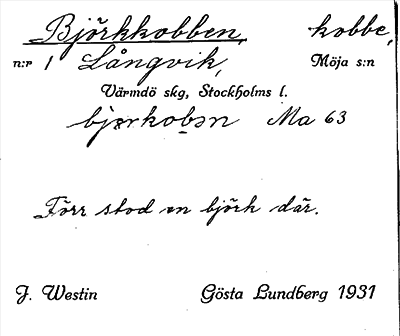 Björkkobben, kobbe,
n:r 1 Långvik, Möja s:n
Värmdö skg, Stockholms l.
bjœrkobən Ma 63
Förr stod en björk där.
J. Westin Gösta Lundberg 1931